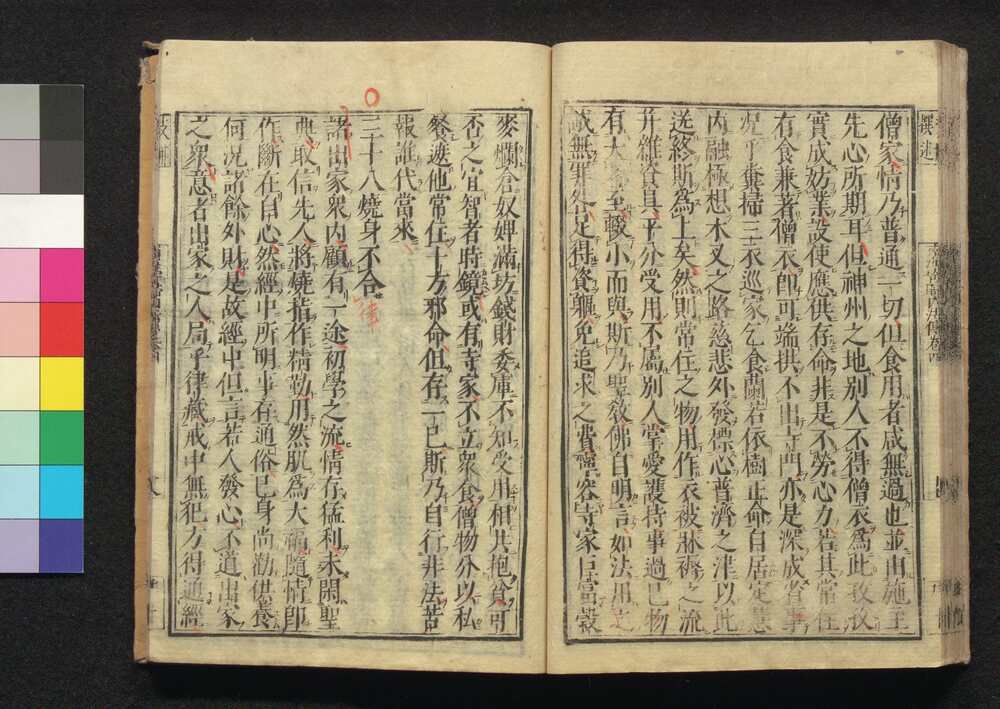 撰述
南海寄歸內法傳卷四
僧家情乃普通一切但食用者咸無過也並由施主
先心所期耳但神州之地別人不得僧衣為此孜孜
實成妨業設使應供存命非是不勞心力若其常住
有食兼著僧衣即可端拱不出寺門亦是深成省事
況乎糞掃三衣巡家乞食蘭若依樹正命自居定慧
內融極想木叉之路慈悲外發摽心普濟之津以此
送終斯為上矣然則常住之物用作衣被牀褥之流
并雜資具平分受用不屬別人掌愛護持事過己物
有大者至輟小而與斯乃聖教佛自明言如法用之
誠無罪咎足得資軀免追求之費寧容寺家巨富穀
麥爛倉奴婢滿坊錢財委庫不知受用相共抱貧可
否之宜智者時鏡或有寺家不立眾食僧物分以私
餐遮他常住十方邪命但存一己斯乃自行非法苦
報誰代當來
三十八燒身不合
律
諸出家眾內顧有一途初學之流情存猛利未閑聖
典取信先人將燒指作精勤用然肌為大福隨情即
作斷在自心然經中所明事存通俗己身尚勸供養
何況諸餘外財是故經中但言若人發心不道出家
之眾意者出家之人局乎律藏戒中無犯方得通經